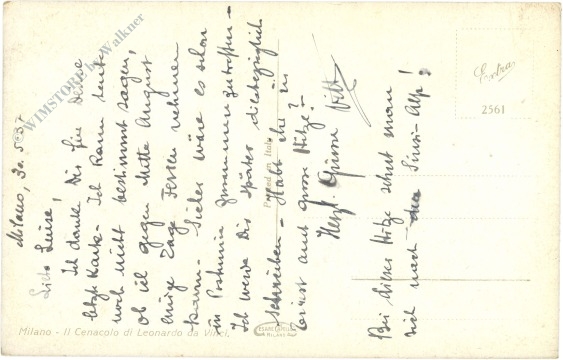 Milano, 30.5.37
Liebe Luise!
Ich danke Dir für Deine
letzte Karte - Ich kann heute
noch nicht bestimmt sagen,
ob ich gegen Mitte August
einige Tage Ferien nehmen
kann - Lieber wäre es schon
in Postumia zusammenzutreffen -
Ich werde Dir später diesbezüglich
schreiben - Habt ihr in
auch grosse Hitze? -
Herzl. Grüsse
Bei dieser Hitze sehnt man
sich nach der - Alpe!
Extra
2561
Printed in Italy
Milano - Il Cenacolo di Leonardo da Vinci.
CESARE CAPELLO
MILANO
© WIMSTORE by Walkner